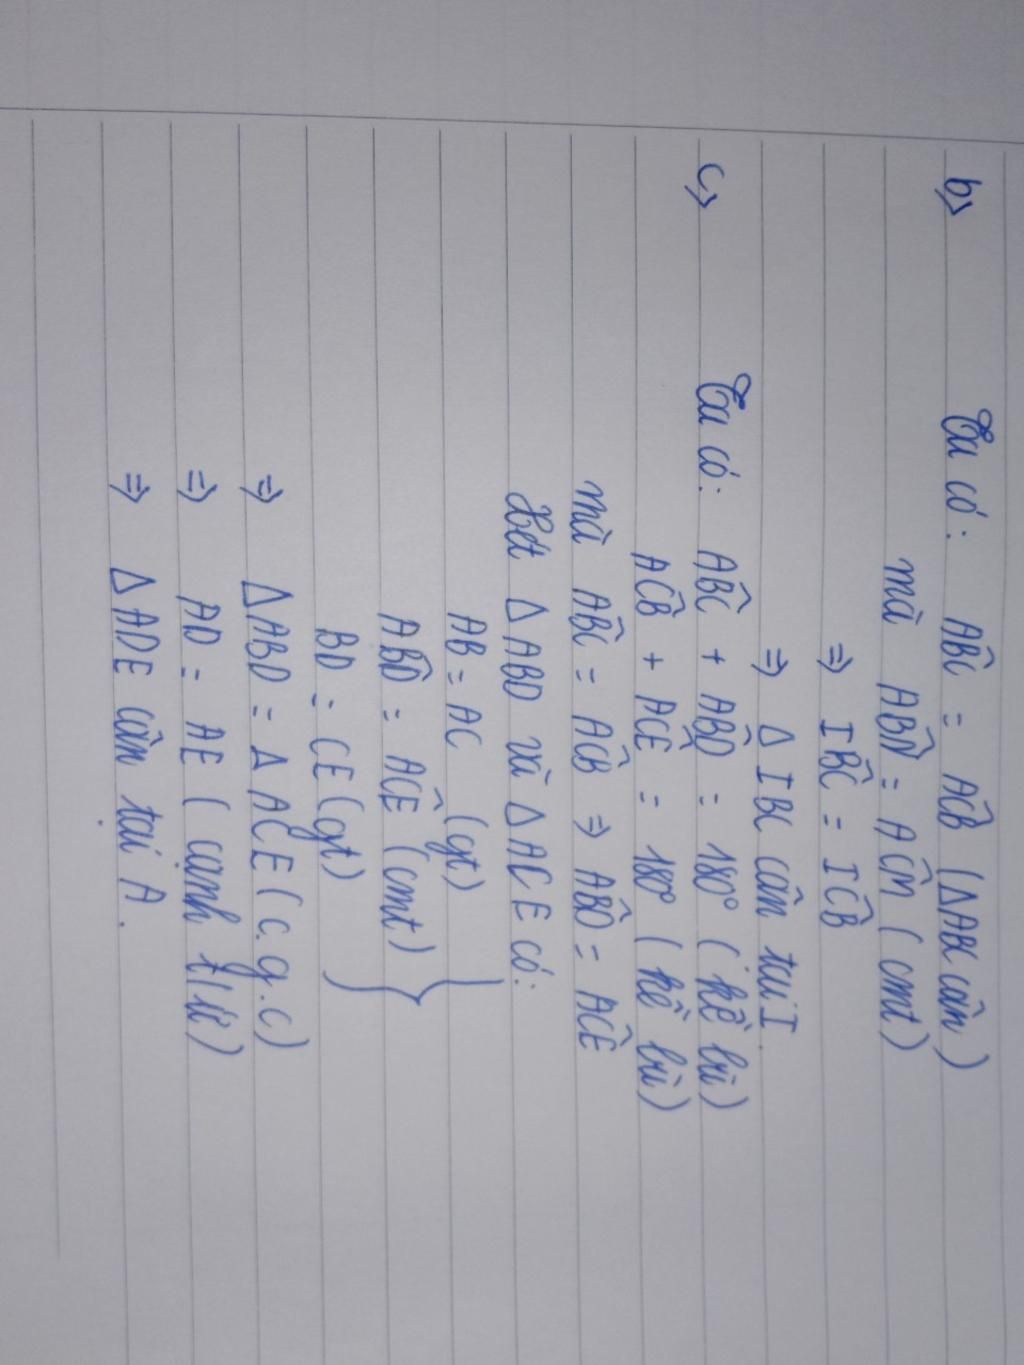 b) Ta có: ABĈ = AĈB (ΔABC cân)
mà AB̂N = AĈM (cmt)
⇒ IB̂C = IĈB
⇒ Δ IBC cân tại I.
c) Ta có: AB̂C + AB̂D = 180° (kề bù)
AĈB + AĈE = 180° (kề bù)
mà AB̂C = AĈB ⇒ AB̂D = AĈE
Xét Δ ABD và Δ ACE có:
AB = AC (gt)
AB̂D = AĈE (cmt)
BD = CE (gt)
⇒ Δ ABD = Δ ACE (c.g.c)
⇒ AD = AE (cạnh t/ứ)
⇒ Δ ADE cân tại A.